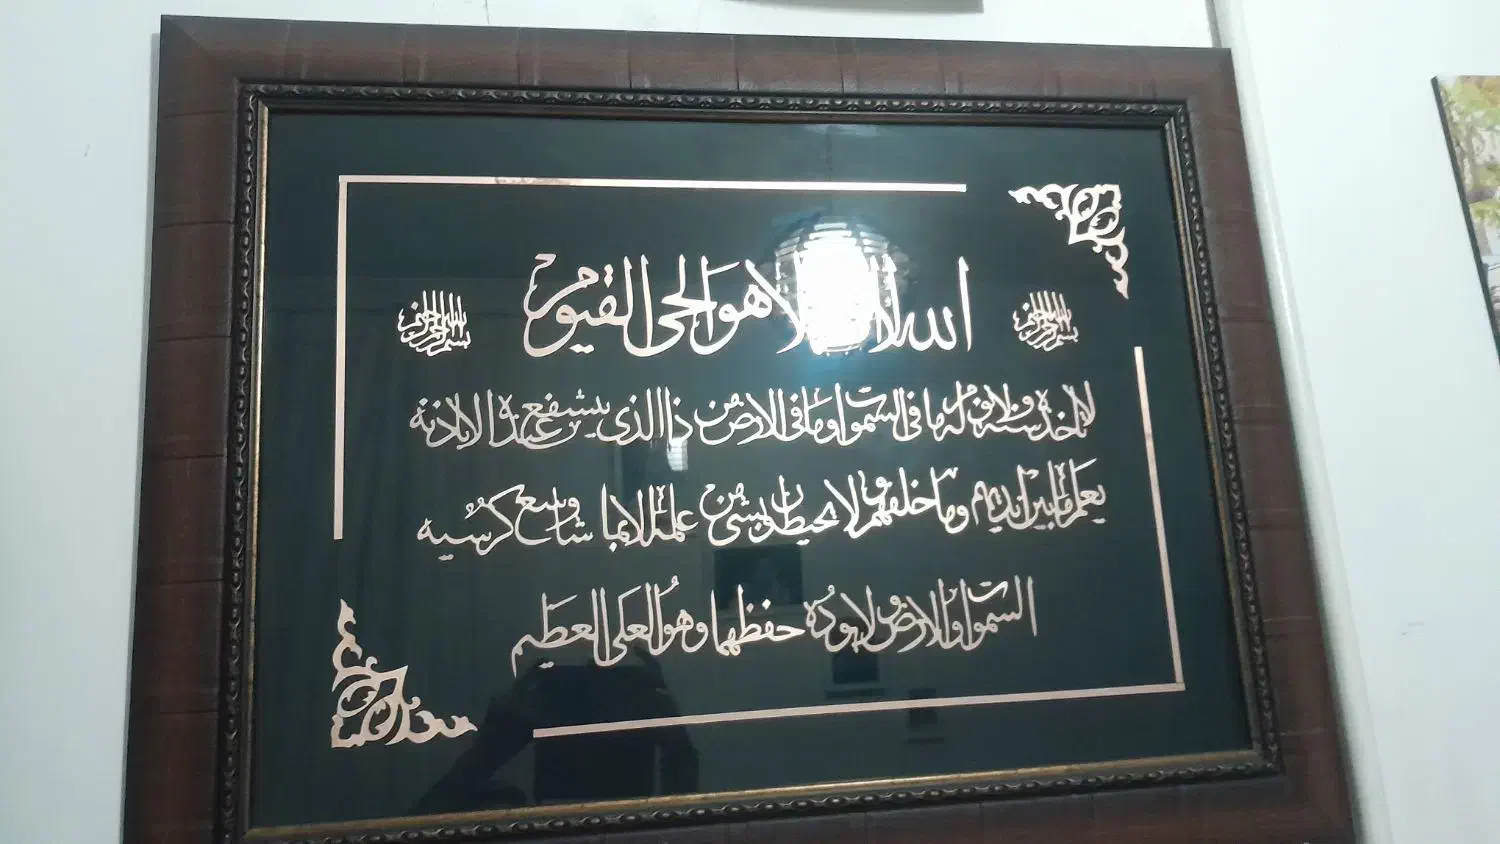 بسم الله الرحمن الرحيم
الله لا اله الا هو الحی القیوم
لا تاخذه سنة ولا نوم له ما فی السموات وما فی الارض من ذا الذی یشفع عنده الا باذنه
یعلم ما بین ایدیهم وما خلفهم ولا یحیطون بشیء من علمه الا بما شاء وسع کرسیه
السموات والارض ولا یوده حفظهما وهو العلی العظیم
بسم الله الرحمن الرحيم